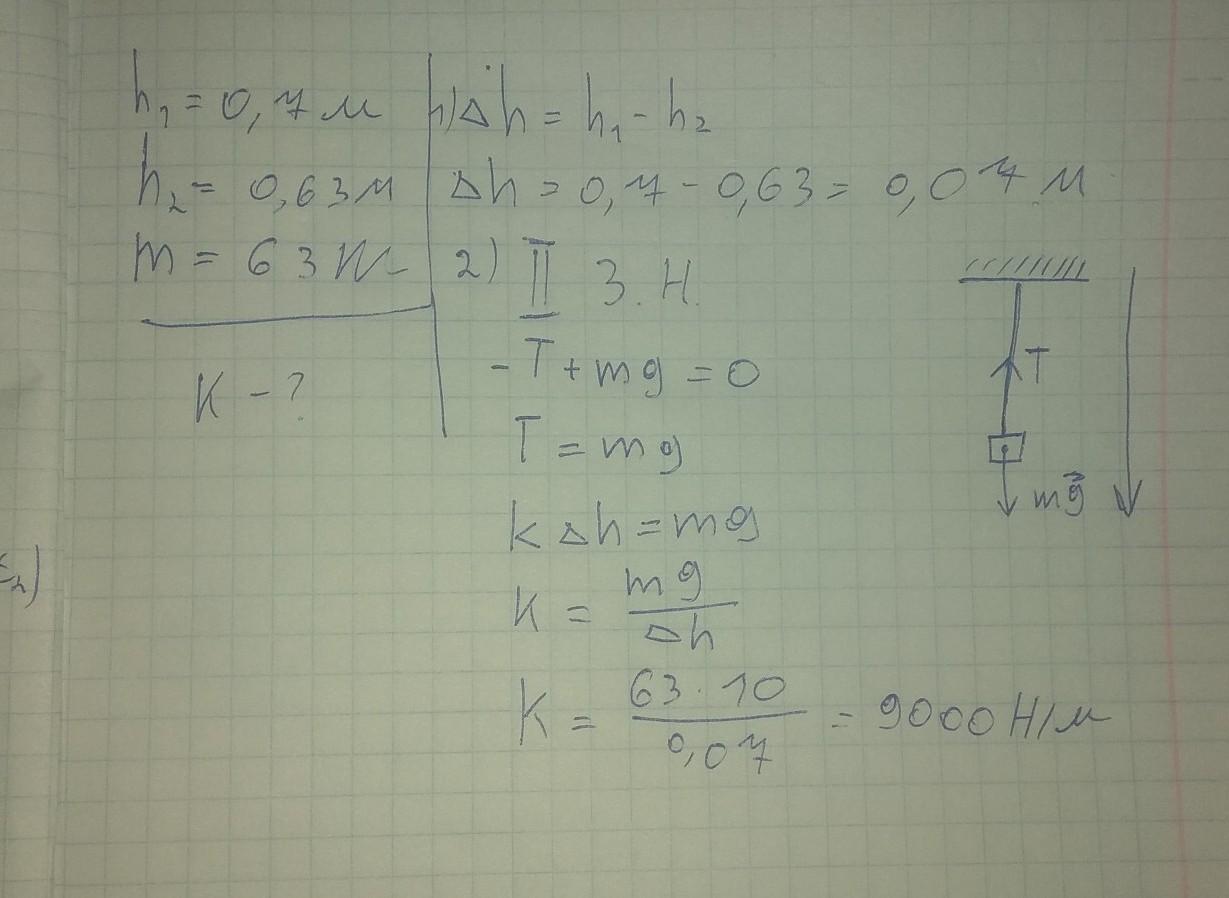 h₁ = 0,7 м
h₂ = 0,63 м
m = 63 кг
K - ?
1) Δh = h₁ - h₂
Δh = 0,7 - 0,63 = 0,07 м
2) II З.Н.
-T + mg = 0
T = mg
k Δh = mg
K = mg / Δh
K = 63 · 10 / 0,07 = 9000 Н/м
T
mg⃗